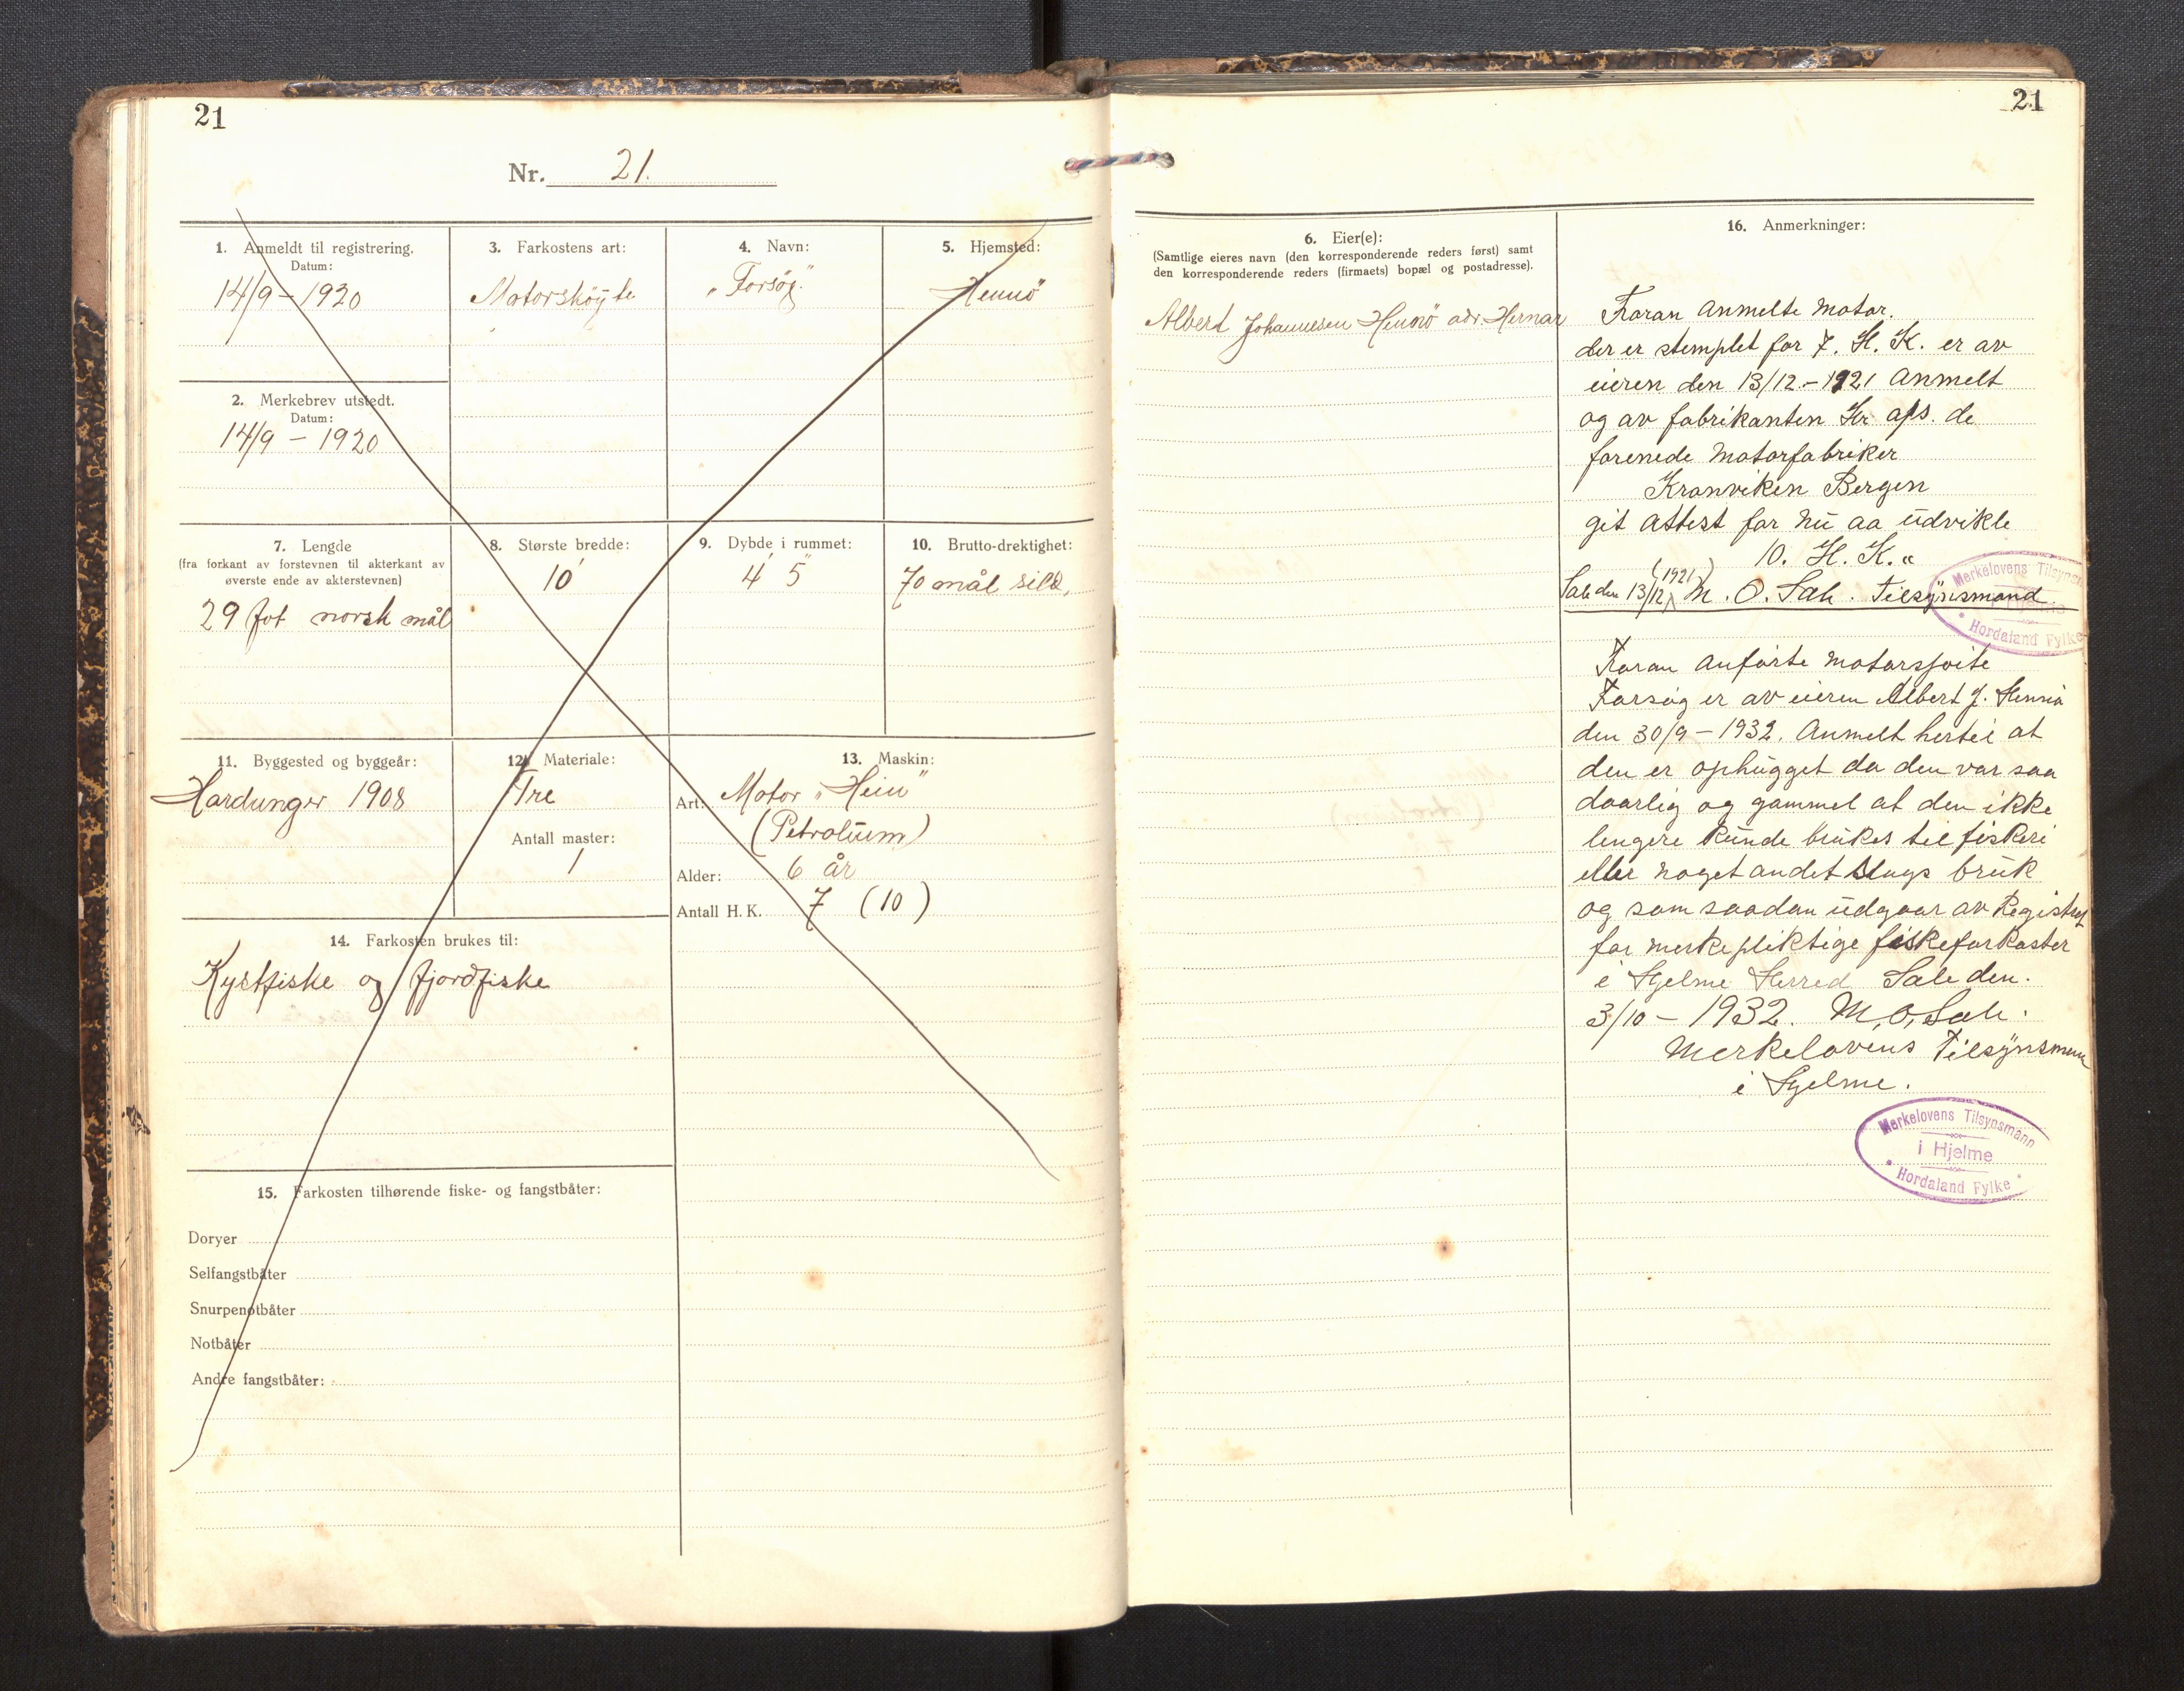 21
Nr. 21.
1. Anmeldt til registrering.
Datum:
14/9 - 1920
3. Farkostens art:
Motorskøyte
4. Navn:
"Forsøg"
5. Hjemsted:
Hennö
2. Merkebrev utstedt.
Datum:
14/9 - 1920
7. Lengde
(fra forkant av forstevnen til akterkant av
øverste ende av akterstevnen)
29 fot norsk mål
8. Største bredde:
10'
9. Dybde i rummet:
4' 5"
10. Brutto-drektighet:
70 mål sild,
11. Byggested og byggeår:
Hardanger 1908
12. Materiale:
Tre
Antall master:
1
13. Maskin:
Art: Motor "Hein"
(Petroleum)
Alder: 6 år
Antall H. K. 7 (10)
14. Farkosten brukes til:
Kystfiske og fjordfiske
15. Farkosten tilhørende fiske- og fangstbåter:
Doryer
Selfangstbåter
Snurpenotbåter
Notbåter
Andre fangstbåter:
21
6. Eier(e):
(Samtlige eieres navn (den korresponderende reders først) samt
den korresponderende reders (firmaets) bopæl og postadresse).
Albert Johannesen Hennö adr. Hernar
16. Anmerkninger:
Foran anmelte motor.
der er stemplet for 7. H. K. er av
eieren den 13/12 - 1921 anmelt
og av fabrikanten
forenede Motorfabriker
Kranviken Bergen
git attest for nu aa udvikle
10. H. K. "
Sale den 13/12 (1921) M. O. Sale. Tilsynsmand
Merkelovens Tilsynsmann
Hordaland Fylke
Foran anførte motorsjøite
Forsøg er av eieren Albert J. Hennø
den 30/9 - 1932. Anmelt hertil at
den er ophugget da den var saa
daarlig og gammel at den ikke
lengere kunde brukes til fiskeri
eller noget andet slags bruk
og som saadan udgaar av Registret
for merkepliktige fiskefarkoster
i Hjelme Herred Sale den.
3/10 - 1932. M, O, Sale.
Merkelovens Tilsynsmann
i Hjelme.
Merkelovens Tilsynsmann
i Hjelme
Hordaland Fylke